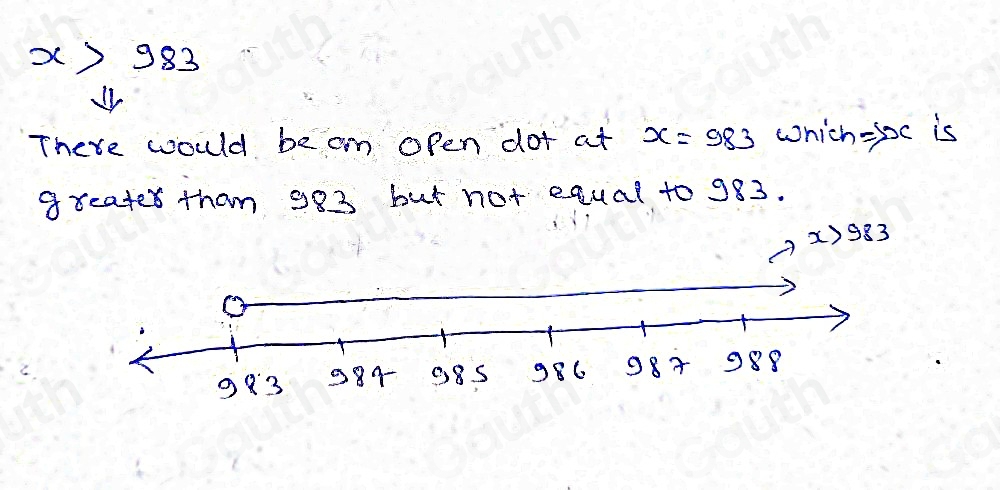 x > 983
⇓
There would be an open dot at x = 983 which ⇒ x is
greater than 983 but not equal to 983.
x > 983
983 984 985 986 987 988